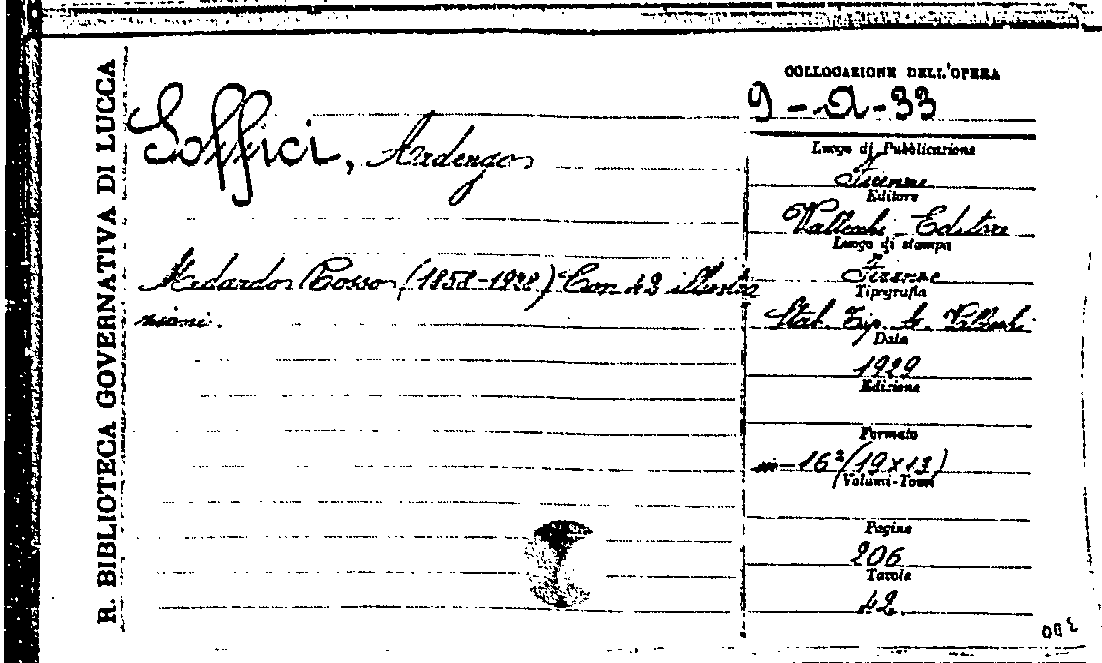 R. BIBLIOTECA GOVERNATIVA DI LUCCA
Soffici, Ardengo
Medardo Rosso (1858-1928) Con 42 illustra
zioni.
COLLOCAZIONE DELL'OPERA
9-Q-33
Luogo di Pubblicazione
Firenze
Editore
Vallecchi Editore
Luogo di stampa
Firenze
Tipografia
Stab. Tip. A. Vallecchi
Data
1929
Edizione
Formato
in-16º (19x13)
Volumi-Tomi
Pagine
206
Tavole
42